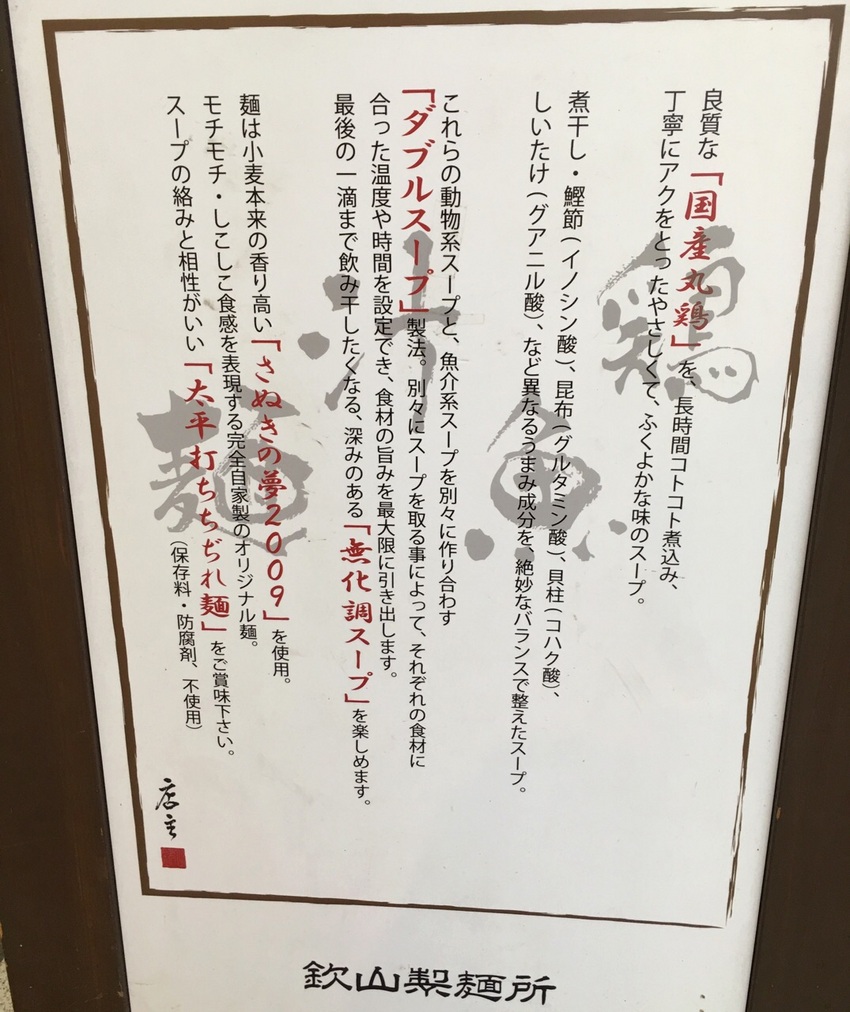 良質な「国産丸鶏」を、長時間コトコト煮込み、
丁寧にアクをとったやさしくて、ふくよかな味のスープ。
鶏
煮干し・鰹節(イノシン酸)、昆布(グルタミン酸)、貝柱(コハク酸)、
しいたけ(グアニル酸)、など異なるうまみ成分を、絶妙なバランスで整えたスープ。
魚
これらの動物系スープと、魚介系スープを別々に作り合わす
「ダブルスープ」製法。別々にスープを取る事によって、それぞれの食材に
合った温度や時間を設定でき、食材の旨みを最大限に引き出します。
最後の一滴まで飲み干したくなる、深みのある「無化調スープ」を楽しめます。
汁
麺は小麦本来の香り高い「さぬきの夢2009」を使用。
モチモチ・しこしこ食感を表現する完全自家製のオリジナル麺。
スープの絡みと相性がいい「太平打ちちぢれ麺」をご賞味下さい。
(保存料・防腐剤、不使用)
麺
店主
欽山製麺所